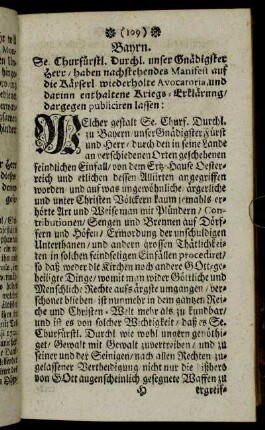 (109)
Bayrn.
Se. Churfürstl. Durchl. unser Gnädigster
Herr / haben nachstehendes Manifest auf
die Käyserl. wiederholte Avocatoria, und
darinn enthaltene Kriegs-Erklärung /
dargegen publiciren lassen:
Welcher gestalt Se. Churf. Durchl.
zu Bayern unser Gnädigster Fürst
und Herr / durch den in seine Lande
an verschiedenen Orten geschehenen
feindlichen Einfall / von dem Ertz-Hause Oester-
reich und etlichen dessen Alliirten angegriffen
worden und auf was ungewöhnliche / ärgerliche
und unter Christen Völckern kaum jemahls er-
hörte Art und Weise man mit Plündern / Con-
tributionen / Sengen und Brennen auf Dörf-
fern und Höfen / Ermordung der unschuldigen
Unterthanen / und andern grossen Thätlichkei-
ten in solchen feindseligen Einfällen procediret /
so daß weder die Kirchen noch andere GOtt ge-
heiligte Dinge / womit man wider Göttliche und
Menschliche Rechte aufs ärgste umgangen / ver-
schonet blieben / ist nunmehr in dem gantzen Rei-
che und Christen-Welt mehr als zu kundbar /
und ist es von solcher Wichtigkeit / daß es Se.
Churfürstl. Durchl. wie wohl ungern genöthi-
get / Gewalt mit Gewalt zuvertreiben / und zu
seiner und der Seinigen / nach allen Rechten zu-
gelassener Vertheidigung nicht nur die ißhero
von GOtt augenscheinlich gesegnete Waffen zu
H ergreif-